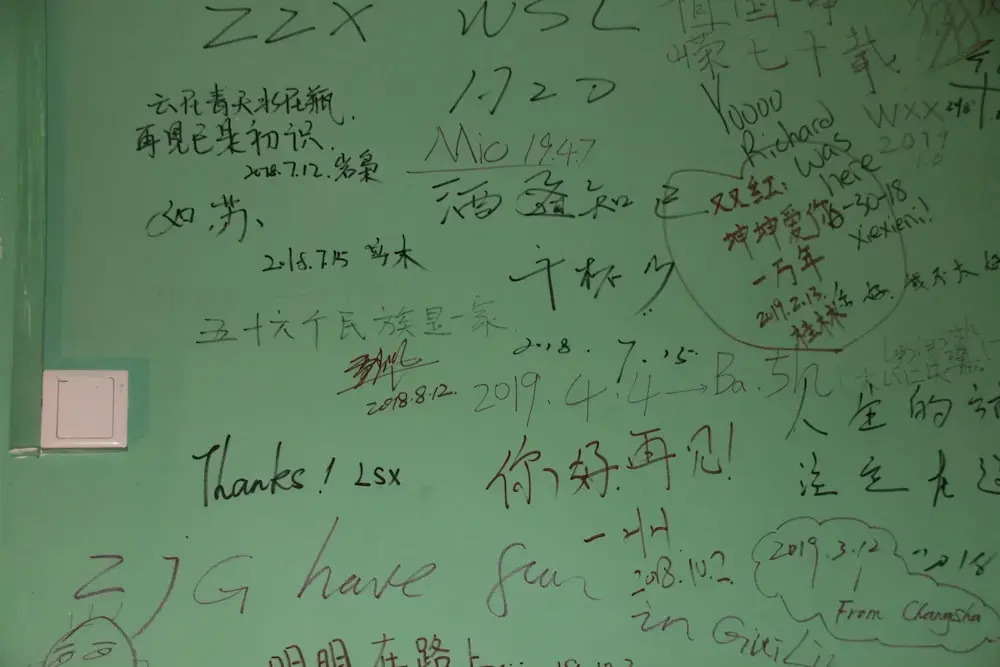 ZZX WSL
1.720
云在青天水在瓶.
再见已是初识.
2018.7.12.
Mio 1947
酒逢知己
千杯少
2018.7.15
嵘七十载
Yoooo
Richard
was
here
-30-18
xiexieni!
WXX
2019
1.0
双红:
坤坤爱你
一万年
2019.2.13.
桂林
如苏、
2018.7.15
五十六个民族是一家
2018.8.12.
2019.4.4→Ba.
人生的
注定在
Thanks! LSX
你好,再见!
2018.10.2
in GuiLin
2019.3.12
From Changsha
2018
ZJG have fun
明明在路上